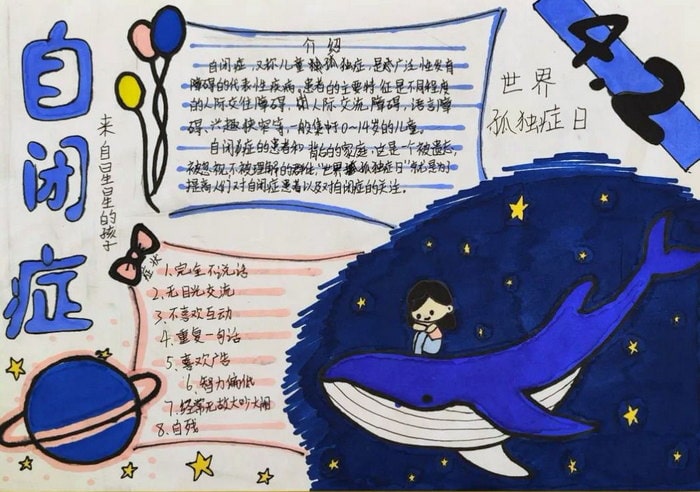 自闭症
来自星星的孩子
介绍
自闭症,又称儿童孤独症,是广泛性发育
障碍的代表性疾病,患者的主要特征是不同程度
的人际交往障碍,如人际交流障碍,语言障
碍、兴趣狭窄等,一般集中0-14岁的儿童。
自闭症的患者和背后的家庭,这是一个被遗忘,
被忽视,不被理解的群体,"世界孤独症日"就是为
提高人们对自闭症患者以及对自闭症的关注。
4.2
世界
孤独症日
症状
1.完全不说话
2.无目光交流
3.不喜欢互动
4.重复一句话
5.喜欢广告
6.智力偏低
7.经常无故大吵大闹
8.自残